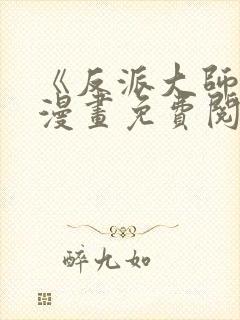 《反派大師
漫畫免費閱
醉九如